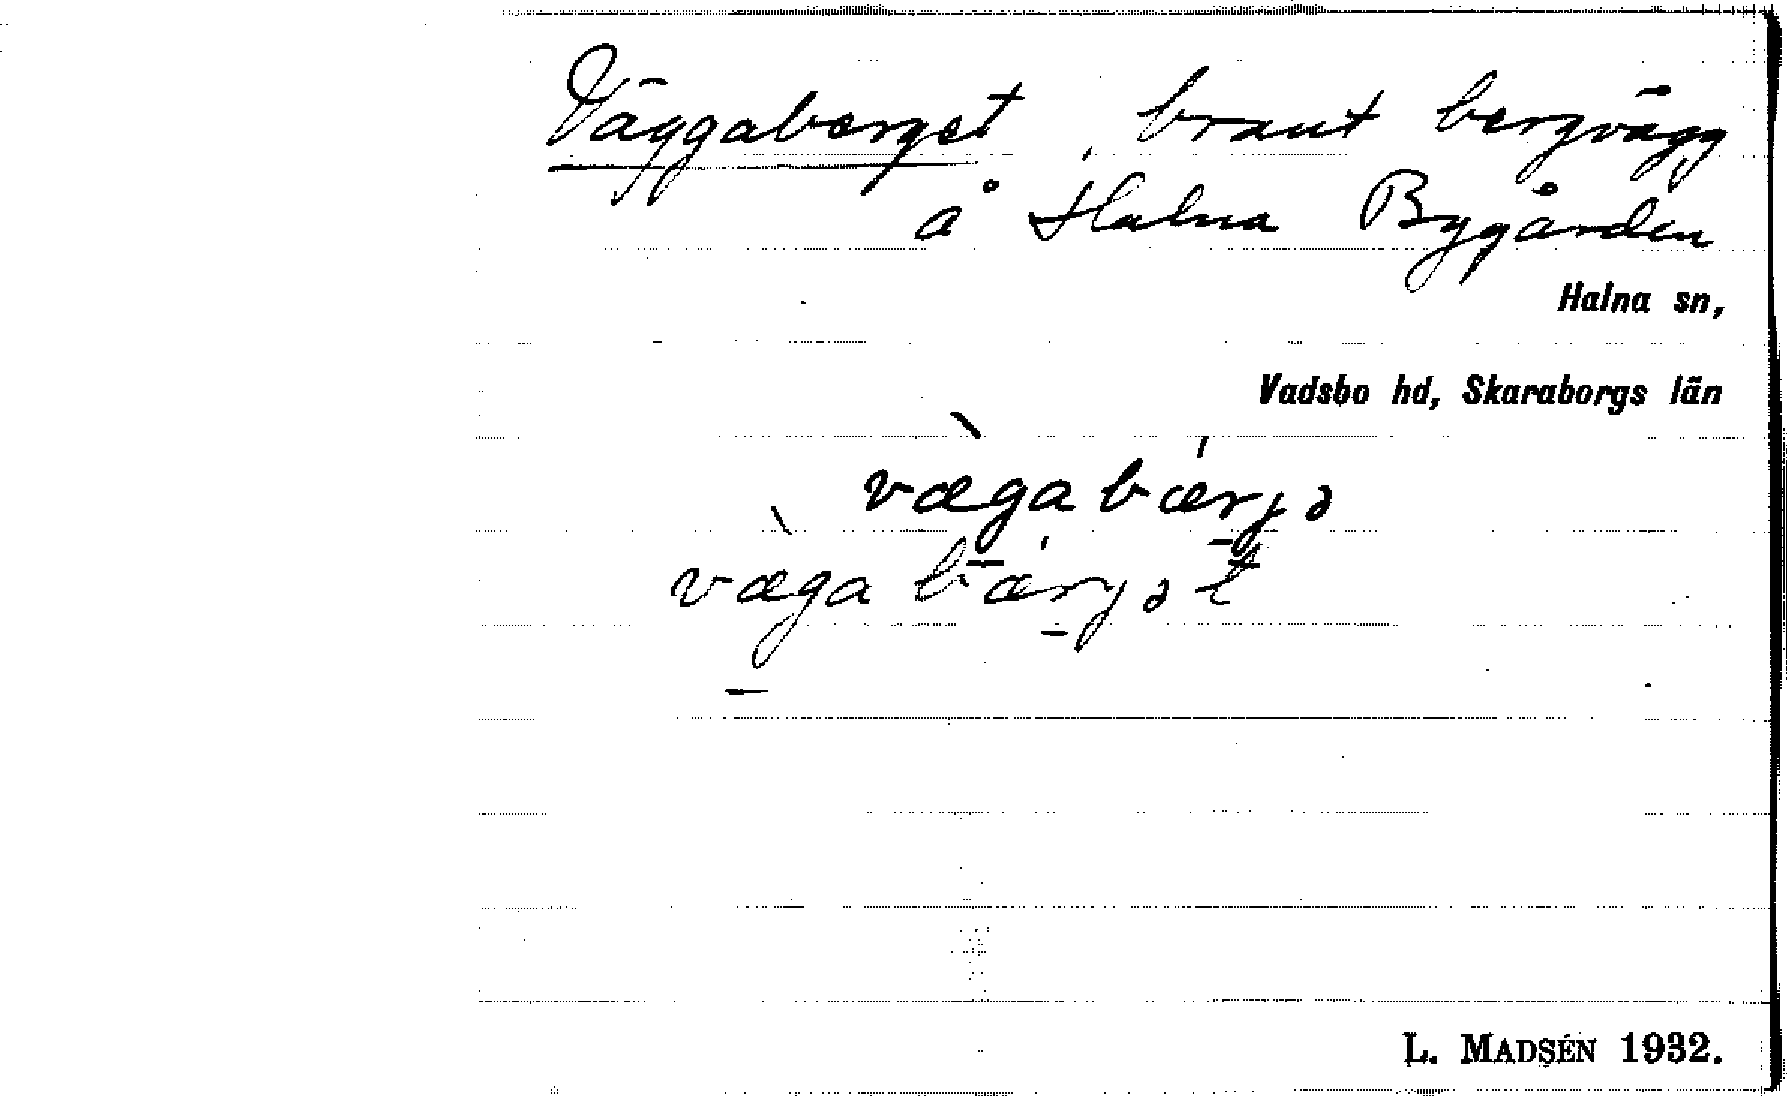 Väggaberget, brant bergvägg
å Halna Bygården
Halna sn,
Vadsbo hd, Skaraborgs län
vægabærjə
vægabærjət
L. MADSÉN 1932.